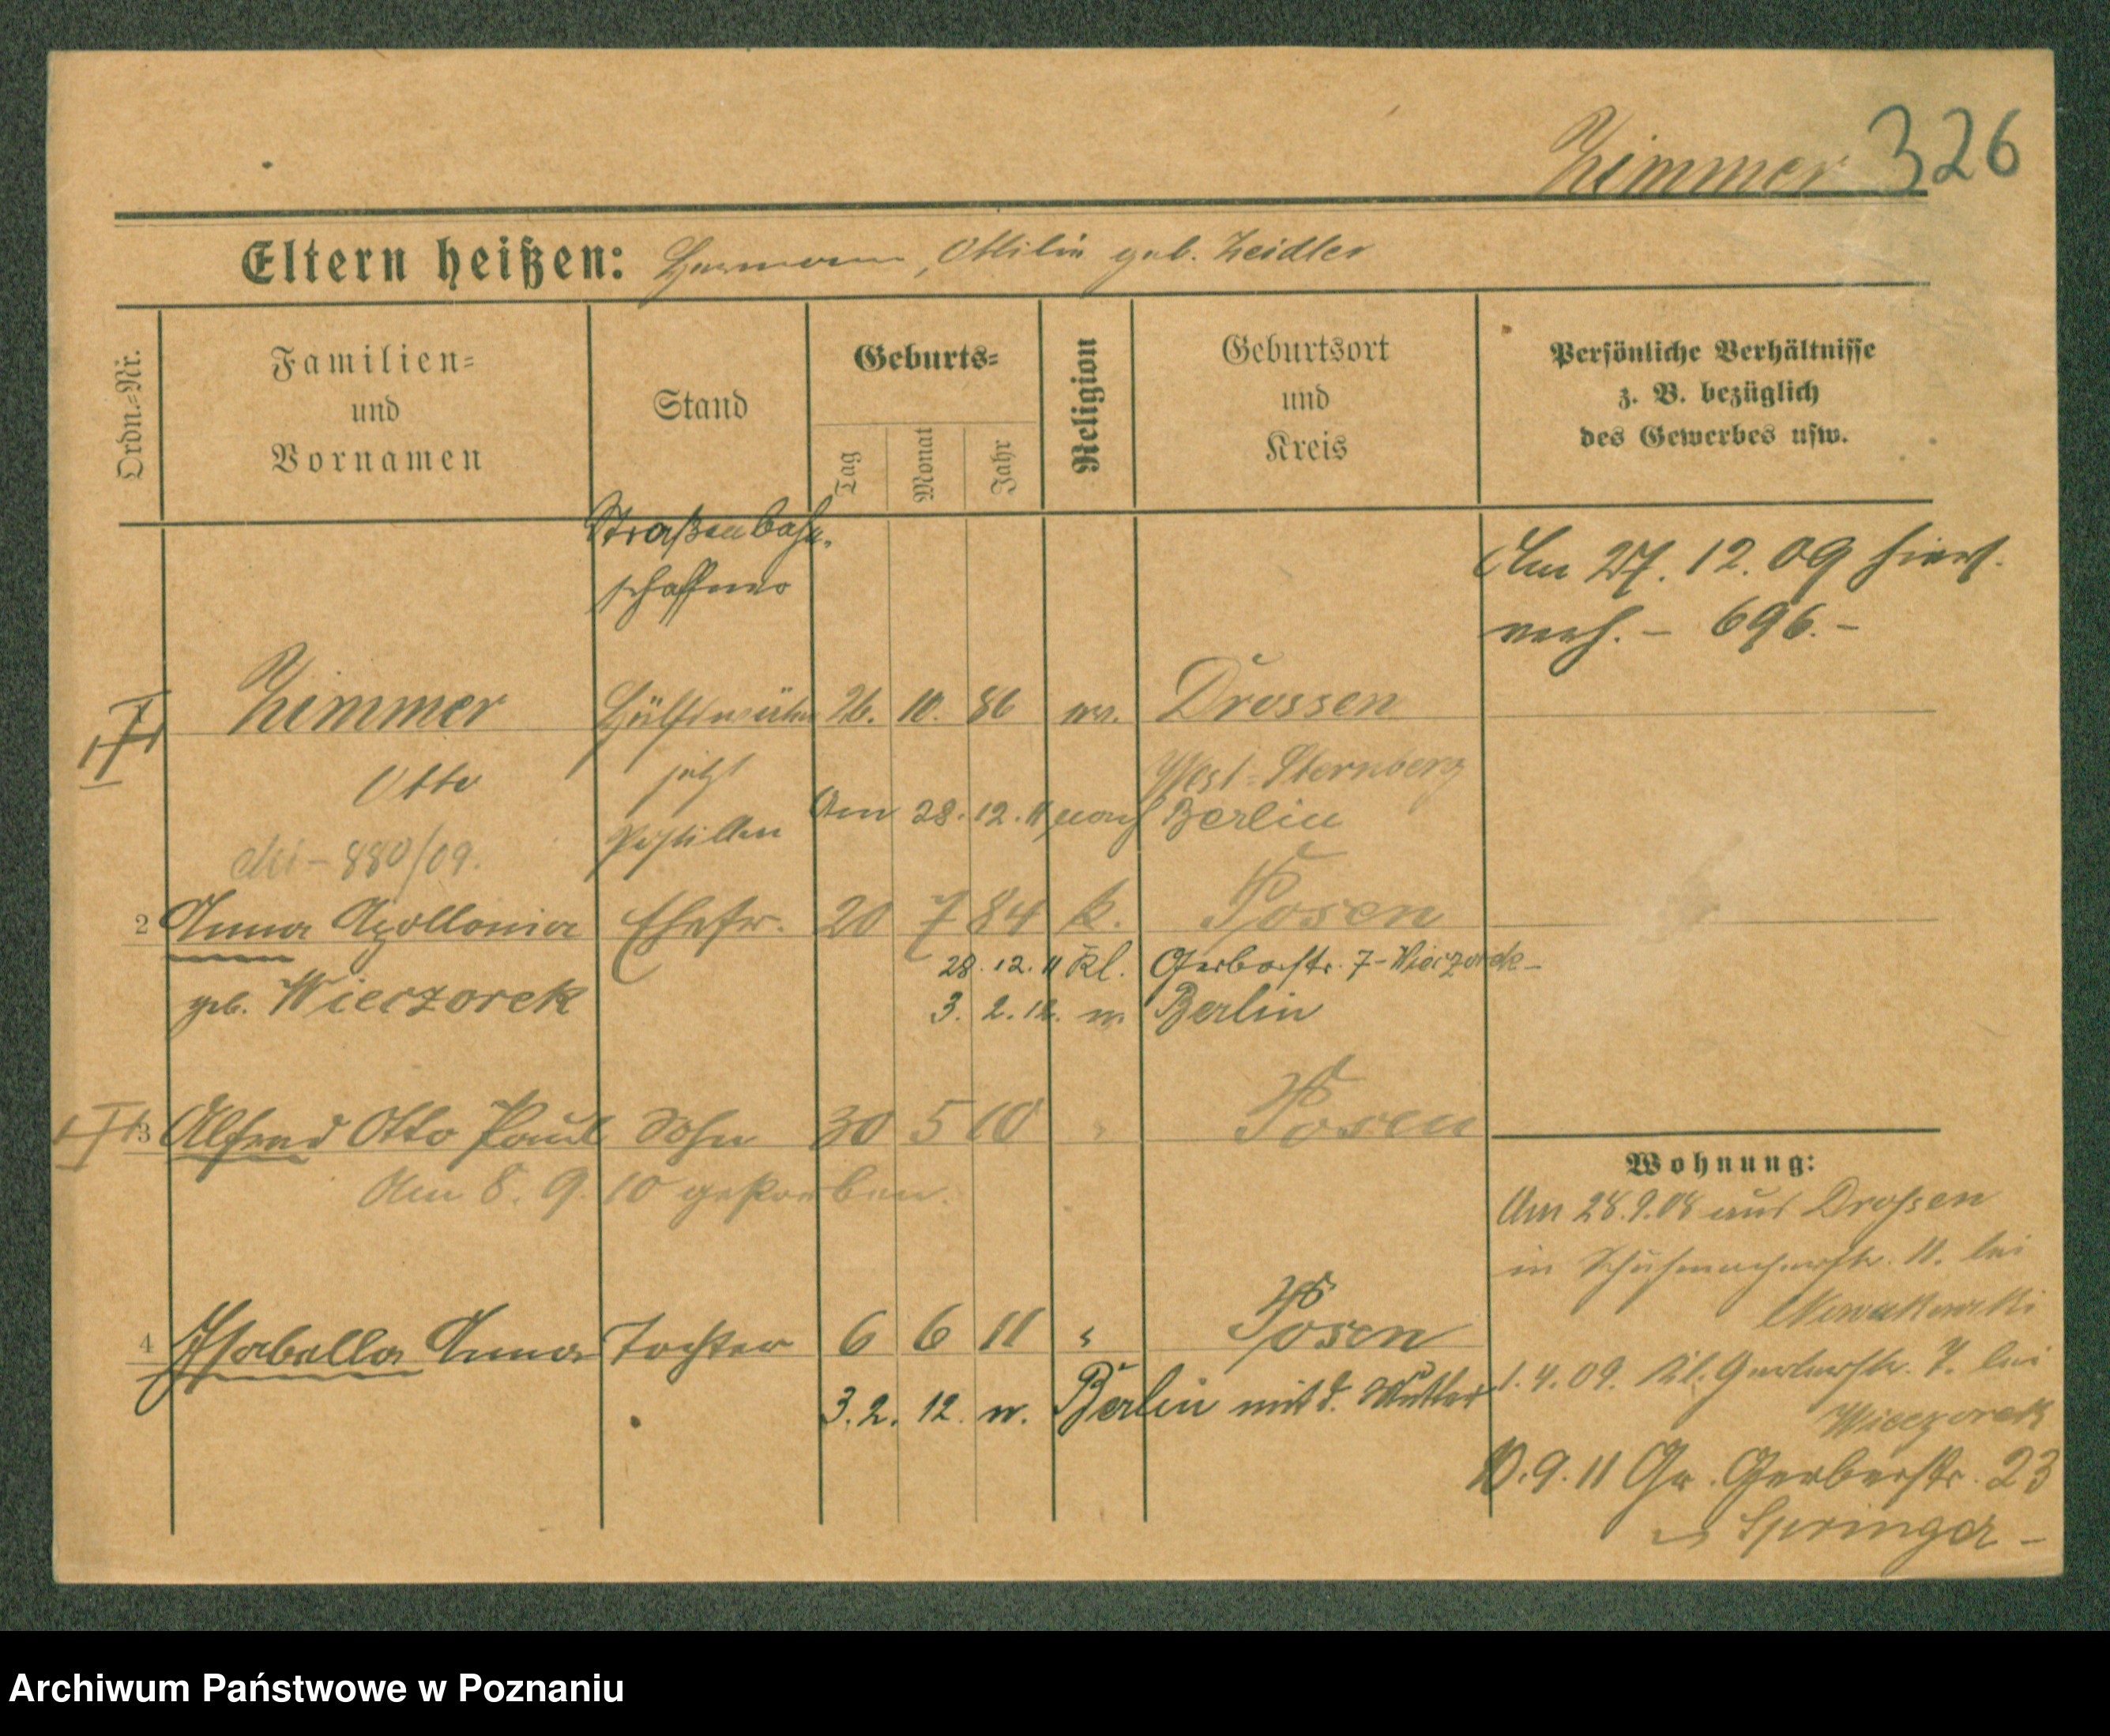 Zimmer 326
Eltern heißen: Hermann, Ottilie geb. Zeidler
Ordn.=Nr.
Familien=
und
Vornamen
Stand
Geburts=
Tag
Monat
Jahr
Religion
Geburtsort
und
Kreis
Persönliche Verhältnisse
z. B. bezüglich
des Gewerbes usw.
Straßenbahn.
schaffner
Am 27. 12. 09 hier
verh. – 696. –
Zimmer 26. 10. 86 ev. Drossen
Otto jetzt West=Sternberg
Postillon Am 28. 12. 11 nach Berlin
880/09.
2 Anna Apollonia Ehefr. 20 7 84 k. Posen
28. 12. 11 Kl. Gerberstr. 7 – Wieczorek –
geb. Wieczorek 3. 2. 12. n. Berlin
3 Alfred Otto Paul Sohn 30 5 10 " Posen
Am 8. 9. 10 gestorben.
4 Isabella Anna Tochter 6 6 11 " Posen
3. 2. 12. n. Berlin mit d. Mutter
Wohnung:
Am 28.9.08 aus Drossen
in Schuhmacherstr. 11. bei
Nowakowski
1. 4. 09. Kl. Gerberstr. 7. bei
Wieczorek
10. 9. 11 Gr. Gerberstr. 23
Springer –
Archiwum Państwowe w Poznaniu